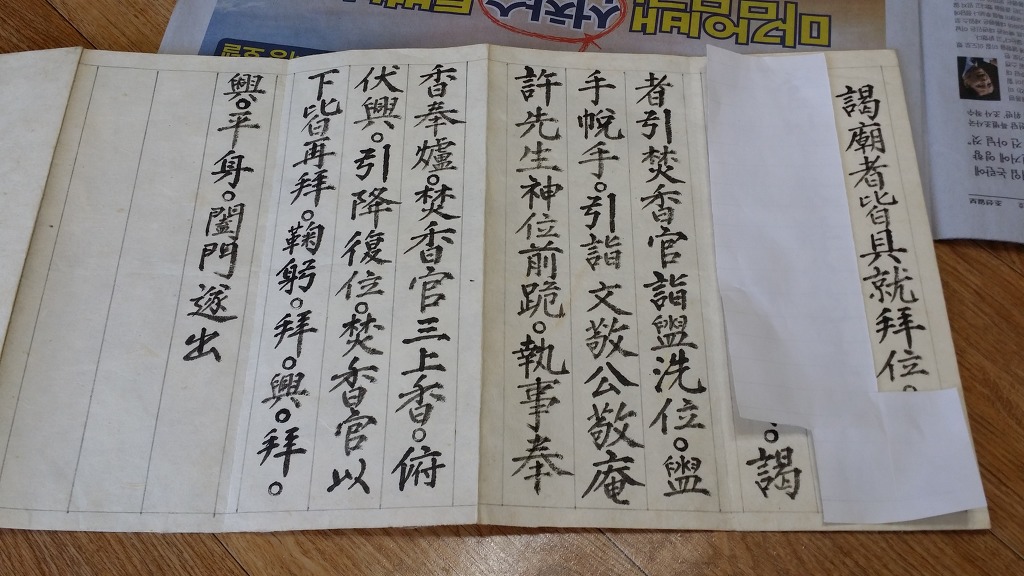 謁廟者皆具就拜位。
。謁
者引焚香官詣盥洗位。盥
手帨手。引詣文敬公敬庵
許先生神位前跪。執事奉
香奉爐。焚香官三上香。俯
伏興。引降復位。焚香官以
下皆再拜。鞠躬。拜。興。拜。
興。平身。闔門遂出
선착순
조선일보